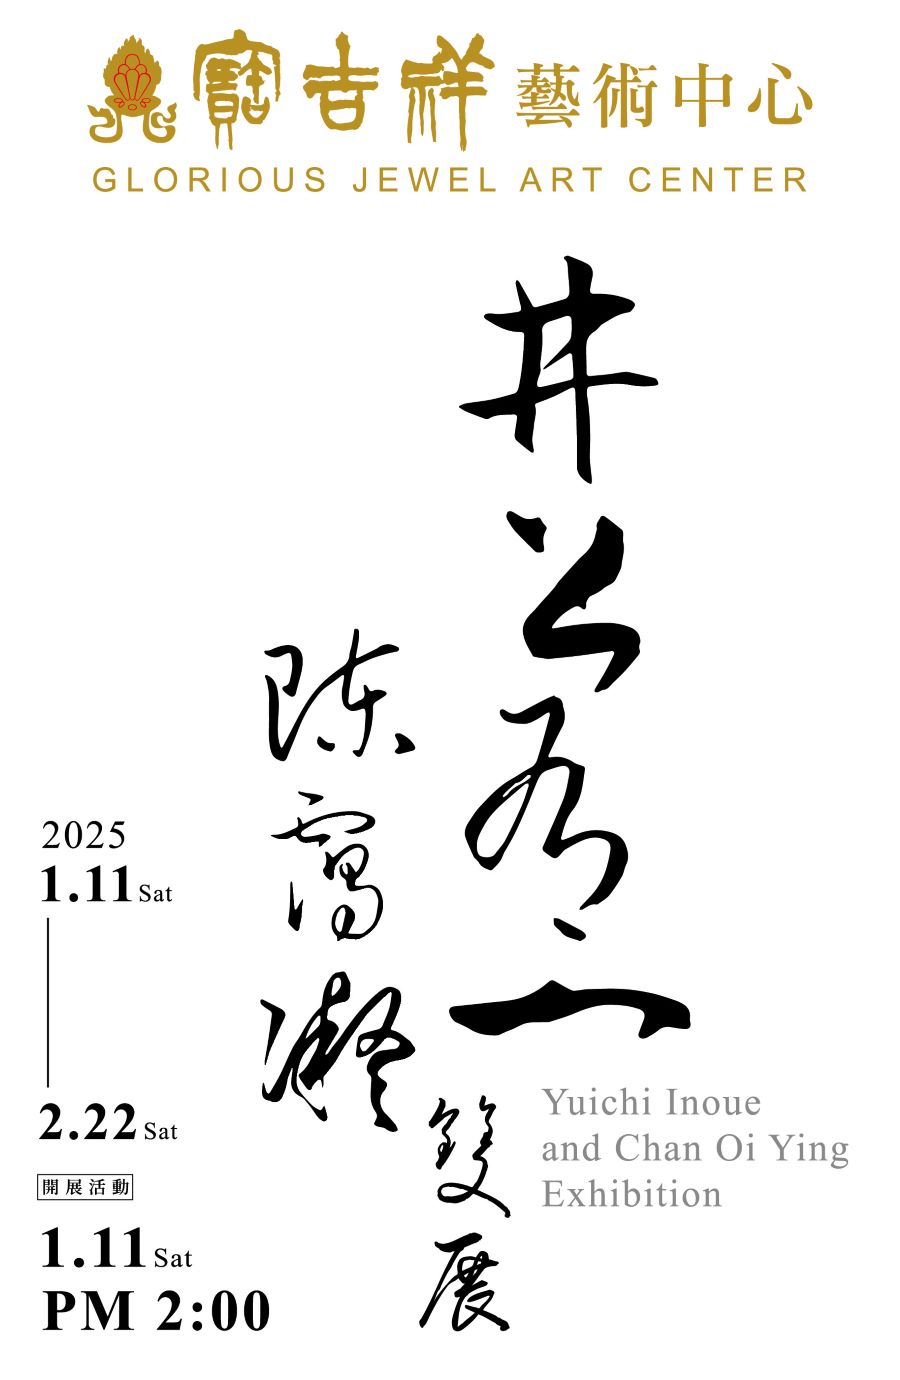 寶吉祥藝術中心
GLORIOUS JEWEL ART CENTER
井上有一
陳靄凝
雙展
Yuichi Inoue
and Chan Oi Ying
Exhibition
2025
1.11 Sat
2.22 Sat
開展活動
1.11 Sat
PM 2:00